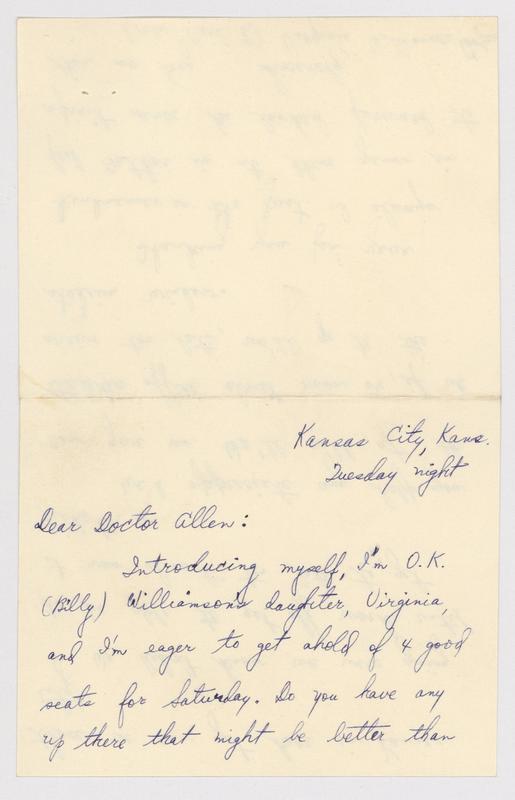 Kansas City, Kans.
Tuesday night
Dear Doctor Allen:
Introducing myself, I'm O.K.
(Billy) Williamson's daughter, Virginia,
and I'm eager to get ahold of 4 good
seats for Saturday. Do you have any
up there that might be better than